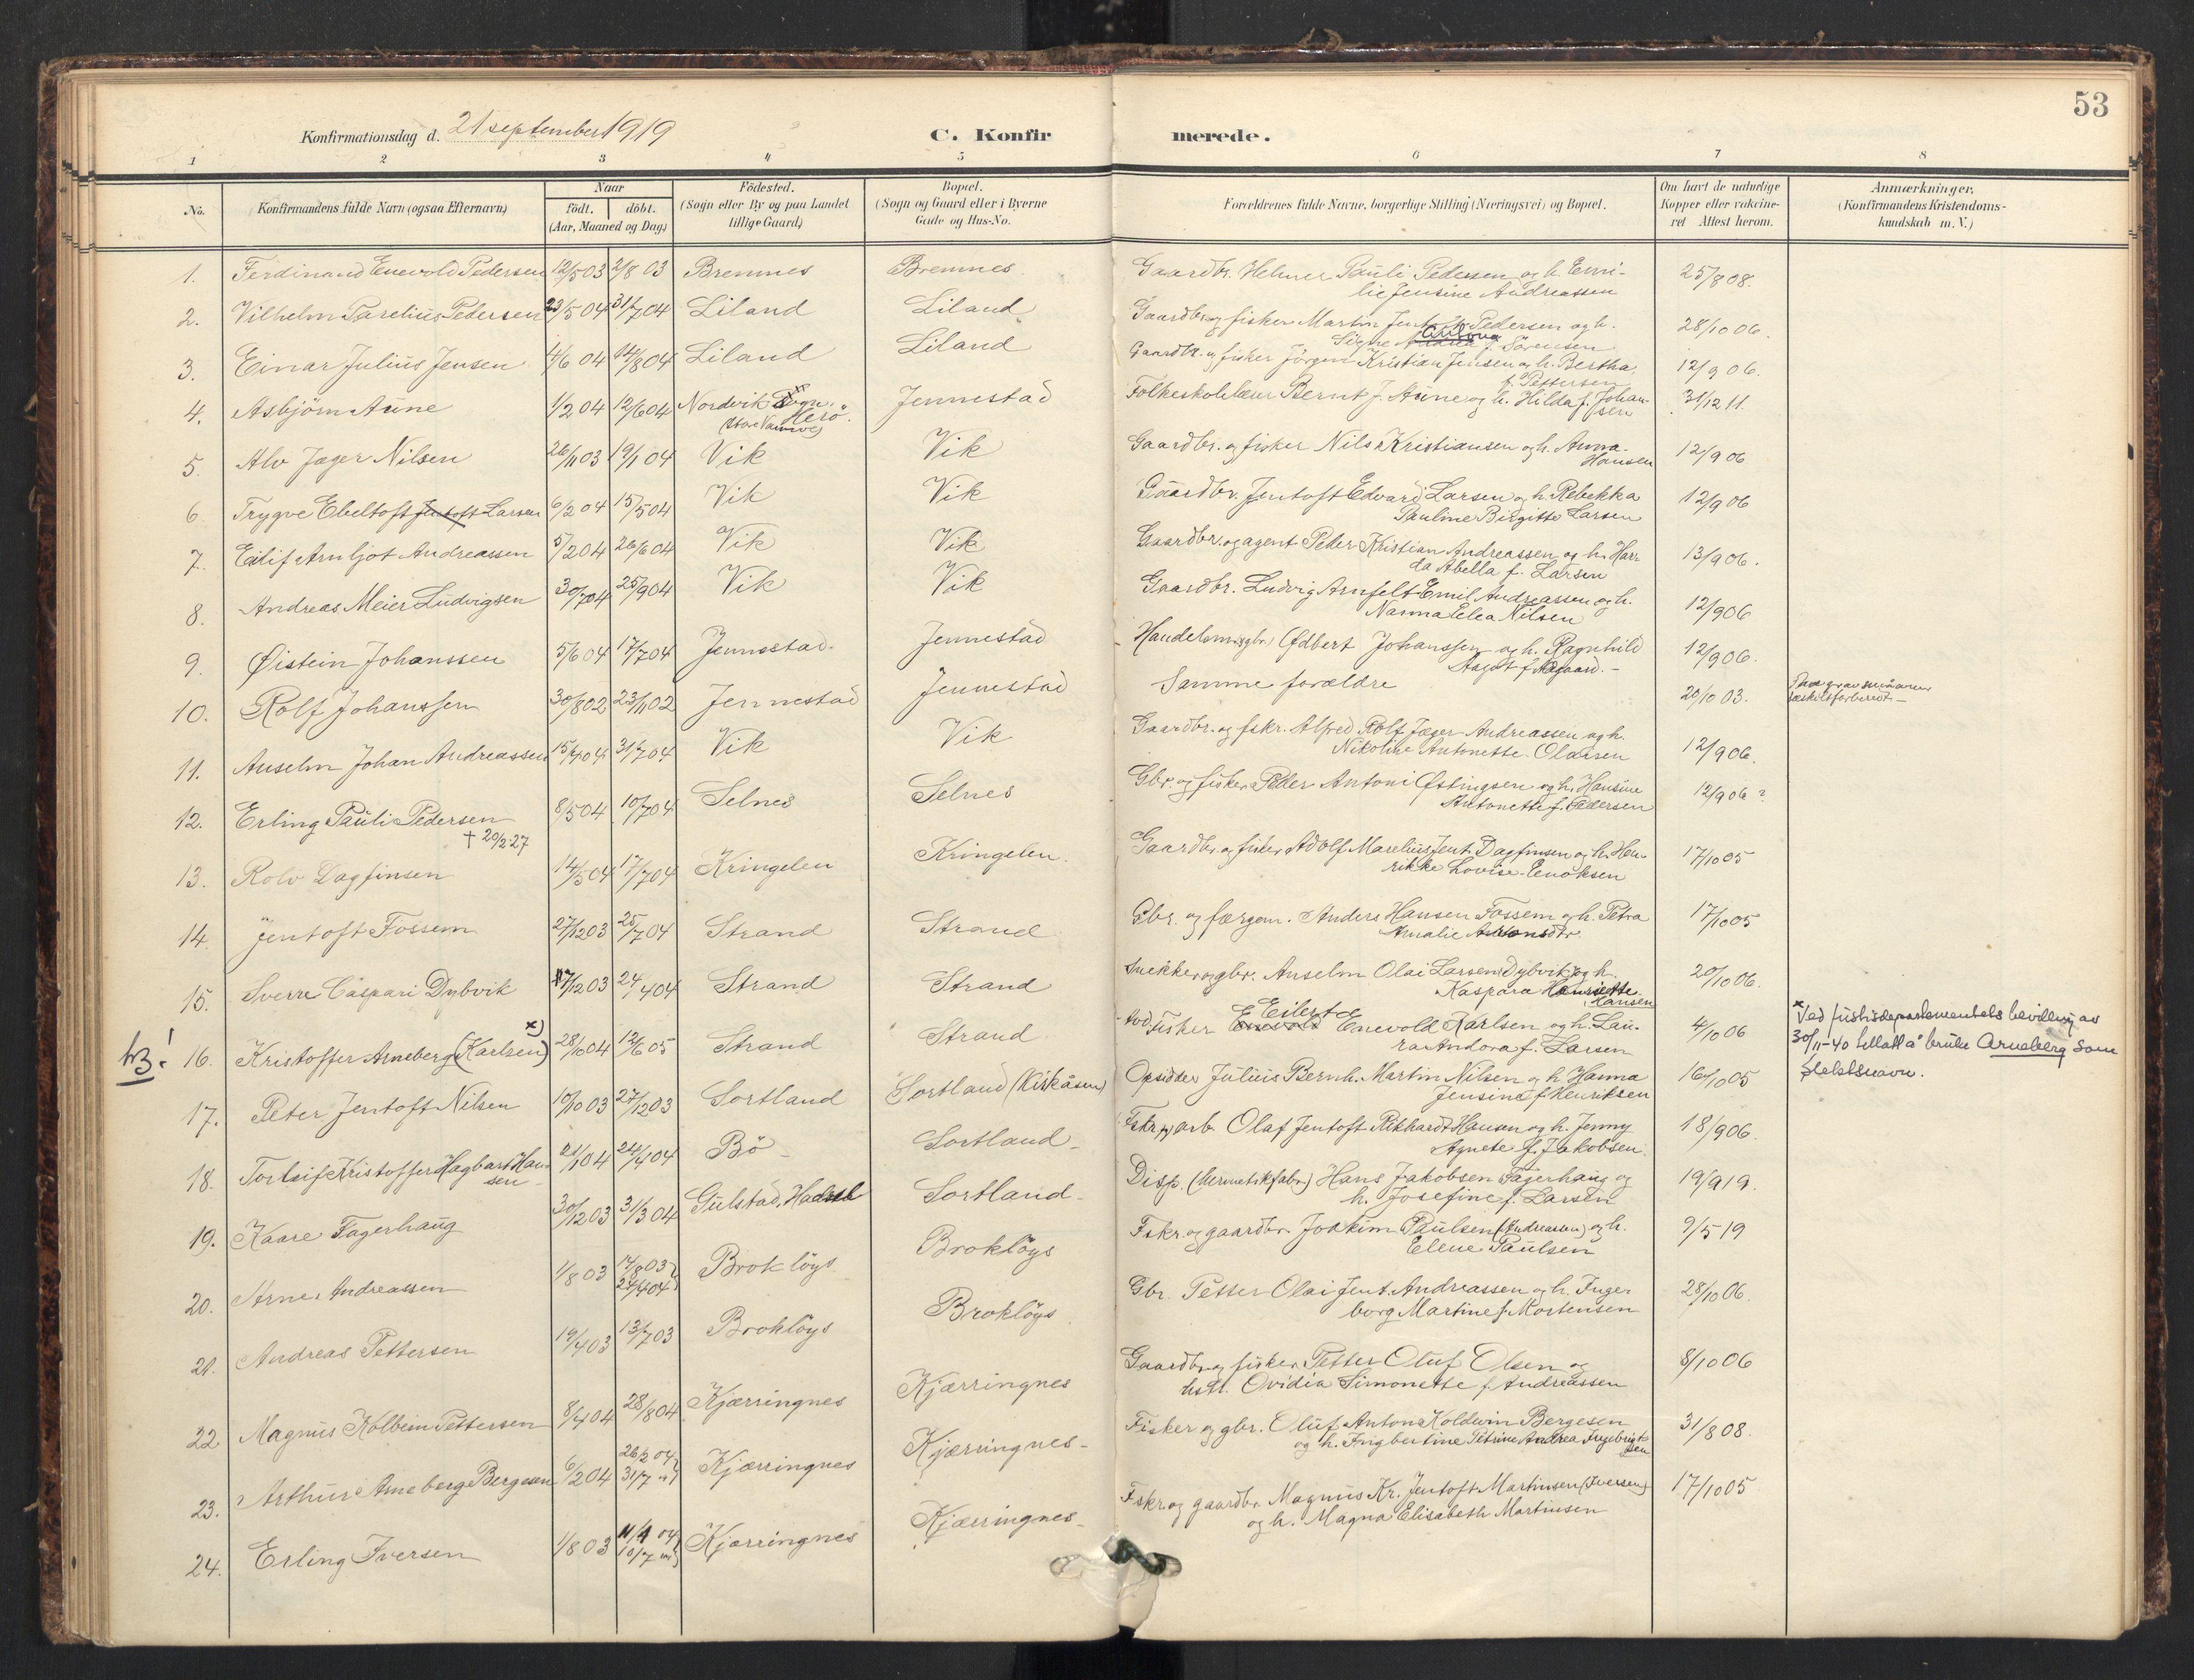 53
Konfirmationsdag d. 21 september 1919
C. Konfirmerede.
1 2 3 4 5 6 7 8
No.
Konfirmandens fulde Navn (ogsaa Efternavn)
Naar
födt. döbt.
(Aar, Maaned og Dag)
Födested.
(Sogn eller By og paa Landet
tillige Gaard)
Bopæl.
(Sogn og Gaard eller i Byerne
Gade og Hus-No.
Forældrenes fulde Navne, borgerlige Stilling (Næringsvei) og Bopæl.
Om havt de naturlige
Kopper eller vakcine-
ret Attest herom.
Anmærkninger.
(Konfirmandens Kristendoms-
kundskab m. V.)
1. Ferdinand Enevold Pedersen 12/5 03 2/8 03 Bremnes Bremnes Gaardbr. Helmer Pauli Pedersen og h. Emi- 25/8 08.
lie Jensine Andreassen
2. Vilhelm Parelius Pedersen 23/5 04 31/7 04 Liland Liland Gaardbr. og fisker Martin Jentoft Pedersen og h. 28/10 06.
Signe f. Sörensen
3. Einar Julius Jensen 4/6 04 14/8 04 Liland Liland Gaardbr. og fisker Jörgen Kristian Jensen og h. Bertha 12/9 06.
f. Pettersen
4. Asbjörn Aune 1/2 04 12/6 04 Nordvik Sogn, Jennestad Folkeskolelærer Bernt J. Aune og h. Hilda f. Johan- 31/12 11.
Herö. sen
5. Alv Jæger Nilsen 26/11 03 19/1 04 Vik Vik Gaardbr. og fisker Nils Kristiansen og h. Anna 12/9 06
Hansen
6 Trygve Ebeltoft Jentoft Larsen 6/2 04 15/5 04 Vik Vik Gaardbr. Jentoft Edvard Larsen og h. Rebekka 12/9 06
Pauline Birgitte Larsen
7. Eilif Arnljot Andreassen 5/2 04 26/6 04 Vik Vik Gaardbr. og agent Peder Kristian Andreassen og h. Har- 13/9 06.
da Abella f. Larsen
8. Andreas Meier Ludvigsen 30/7 04 25/9 04 Vik Vik Gaardbr. Ludvig Arnfelt Emil Andreassen og h. 12/9 06
Nanna Elea Nilsen
9. Øistein Johanssen 5/6 04 17/7 04 Jennestad. Jennestad Handelsm. (gbr.) Edbert Johanssen og h. Ragnhild 12/9 06.
Aagot f. Aagaard. -
10. Rolf Johanssen 30/8 02 23/11 02 Jennestad Jennestad Samme forældre 20/10 03.
11. Anselm Johan Andreassen 15/4 04 31/7 04 Vik Vik Gaardbr. og fskr. Alfred Rolf Jæger Andreassen og h. 12/9 06.
Nikoline Antonette Olaisen
12. Erling Pauli Pedersen 8/5 04 10/7 04 Selnes Selnes Gbr. og fisker Peder Antoni Østingsen og h. Hansine 12/9 06?
† 20/2 27 Antonette f. Pedersen
13. Rolv Dagfinsen 14/5 04 17/7 04 Kringelen Kringelen. Gaardbr. og fisker Adolf Marelius Jent. Dagfinsen og h. Hen- 17/10 05
rikke Lovise Enoksen
14. Jentoft Fossem 27/12 03 25/7 04 Strand Strand Gbr. og færgem. Anders Hansen Fossem og h. Petra 17/10 05
Amalie Antonsdtr
15. Sverre Caspari Dybvik 17/12 03 24/4 04 Strand Strand Snekker og gbr. Anselm Olai Larsen Dybvik og h. 20/10 06.
Kaspara Hansen
NB! 16. Kristoffer Arneberg (Karlsen) x) 28/10 04 12/6 05 Strand Strand Fisker Eilert Enevold Karlsen og h. Lau- 4/10 06 x Ved justisdepartementets bevilling av
ra Andora f. Larsen 30/11-40 tillatt å bruke Arneberg som
slektsnavn.
17. Peter Jentoft Nilsen 10/10 03 27/12 03 Sortland Sortland (Kirkåsen) Opsidder Julius Bernh. Martin Nilsen og h. Hanna 16/10 05
Jensine f. Henriksen
18. Torleif Kristoffer Hagbart Han- 21/1 04 24/4 04 Bö - Sortland - Fskr. og arb. Olaf Jentoft Rikhardt Hansen og h. Jenny 18/9 06.
sen - Agnete f. Jakobsen.
19. Kaare Fagerhaug 30/12 03 31/3 04 Gulstad, Hadsel Sortland - Disp. (Hermetikfabr.) Hans Jakobsen Fagerhaug og 19/9 19.
h. Josefine f. Larsen
20. Arne Andreassen 1/8 03 14/8 03 Brokløys Brokløys Fskr. og gaardbr. Joakim Paulsen (Andreassen) og h. 9/5 19
24/4 04 Elene Paulsen
21. Andreas Pettersen 19/4 03 13/7 03 Brokløys Brokløys Gbr. Petter Olai Jent. Andreassen og h. Inger 28/10 06.
borg Martine f. Mortensen
22 Magnus Kolbein Pettersen 8/4 04 28/8 04 Kjærringnes Kjærringnes Gaardbr. og fisker Petter Oluf Olsen og 8/10 06
hstr. Ovidia Simonette f. Andreassen
23. Arthur Arneberg Bergesen 6/2 04 26/2 04 Kjærringnes Kjærringnes - Fisker og gbr. Oluf Anton Koldevin Bergesen 31/8 08.
31/7 " og h. Ingbertine Petrine Andrea Ingebrigt-
sen
24. Erling Iversen 1/8 03 11/4 04 Kjærringnes Kjærringnes - Fskr. og gaardbr. Magnus Kr. Jentoft Martinsen (Iversen) 17/10 05
10/7 " og h. Magna Elisabeth Martinsen